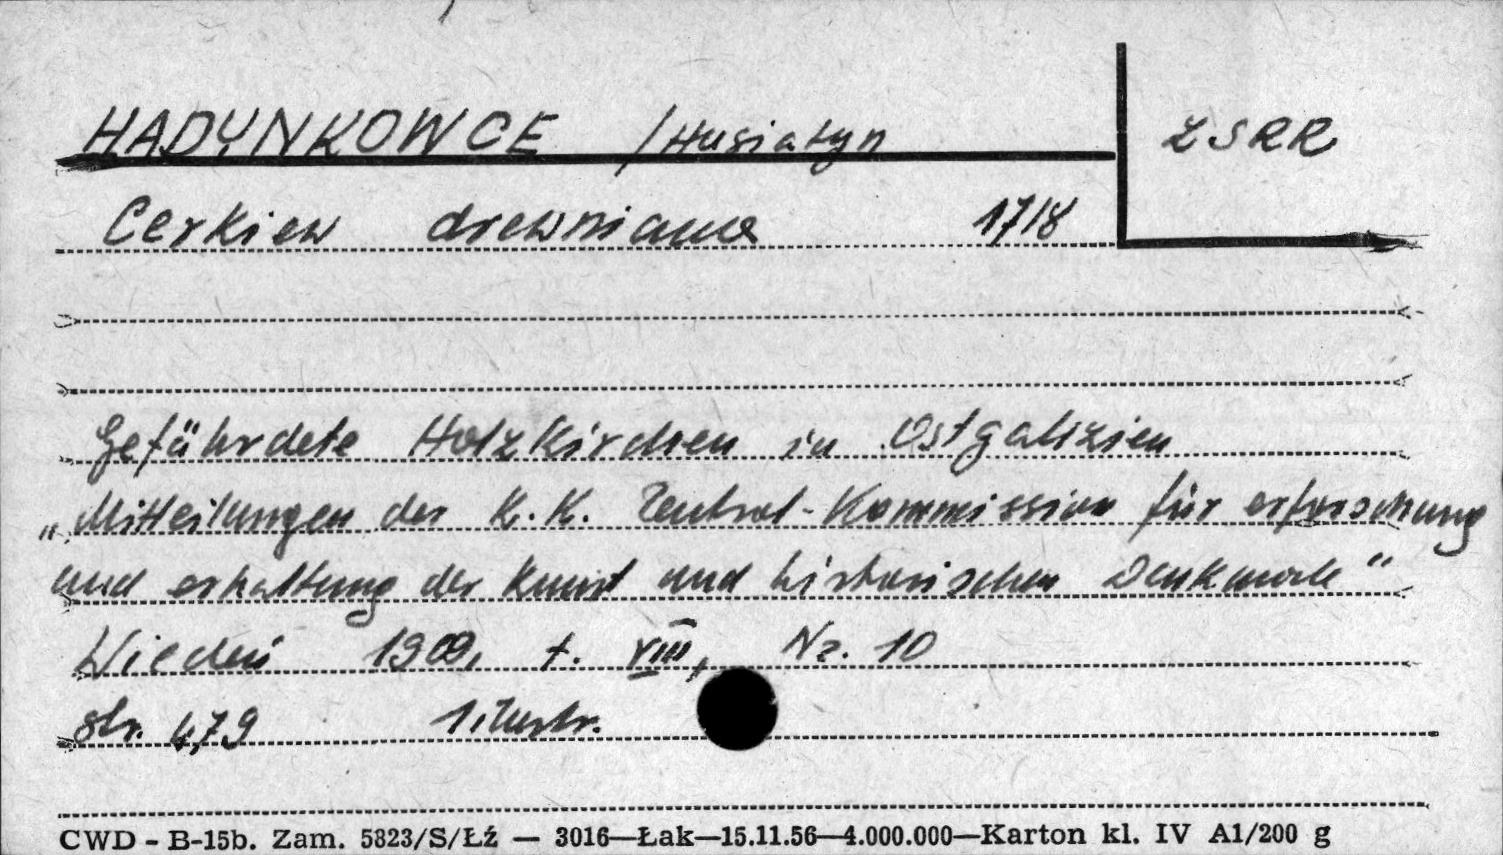 HADYNKOWCE /Husiatyn
ZSRR
Cerkiew drewniana 1718
Gefährdete Holzkirchen in Ostgalizien
„Mitteilungen der K.K. Zentral-Kommission für erforschung
und erhaltung der Kunst und historischen Denkmale"
Wiedeń 1909, t. VIII, Nr. 10
str. 479 1 ilustr.
CWD - B-15b. Zam. 5823/S/Łź — 3016—Łak—15.11.56—4.000.000—Karton kl. IV A1/200 g